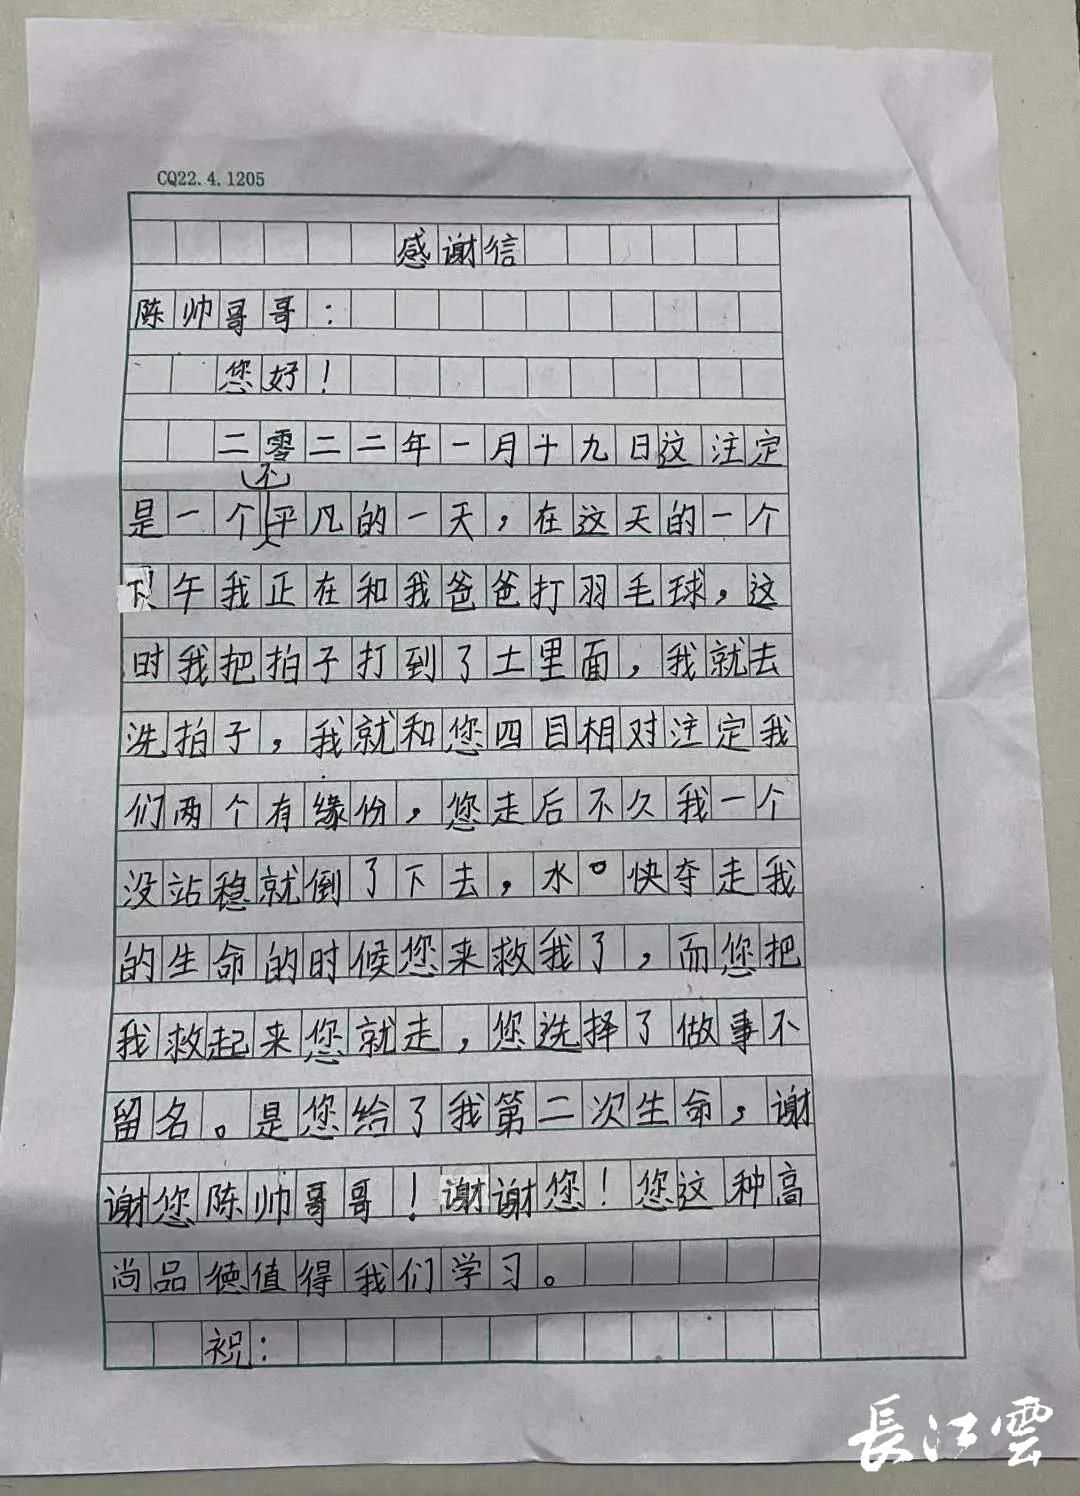 CQ22.4.1205
感谢信
陈帅哥哥：
您好！
二零二二年一月十九日这注定
是一个不平凡的一天，在这天的一个
下午我正在和我爸爸打羽毛球，这
时我把拍子打到了土里面，我就去
洗拍子，我就和您四目相对注定我
们两个有缘份，您走后不久我一个
没站稳就倒了下去，水快夺走我
的生命的时候您来救我了，而您把
我救起来您就走，您选择了做事不
留名。是您给了我第二次生命，谢
谢您陈帅哥哥！谢谢您！您这种高
尚品德值得我们学习。
祝：
長江雲